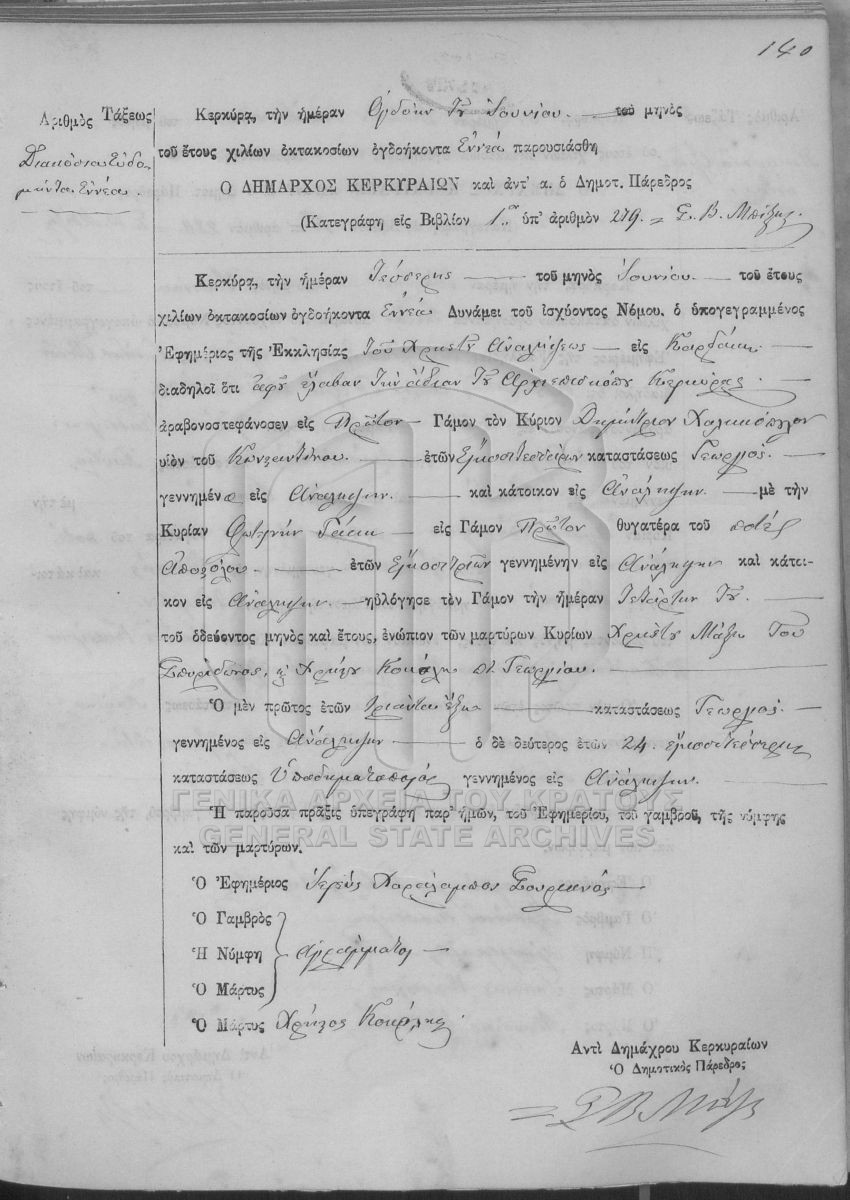 140
Ἀριθμὸς Τάξεως
Διακόσια Ευδο-
μήντα Εννέα.
Κερκύρα, τὴν ἡμέραν Ογδόην Του Ιουνίου. — τοῦ μηνὸς
τοῦ ἔτους χιλίων ὀκτακοσίων ὀγδοήκοντα Εννέα παρουσιάσθη
Ο ΔΗΜΑΡΧΟΣ ΚΕΡΚΥΡΑΙΩΝ καὶ ἀντ' α. ὁ Δημοτ. Πάρεδρος
(Κατεγράφη εἰς Βιβλίον 1ον ὑπ' ἀριθμὸν 279. =
Κερκύρα, τὴν ἡμέραν Τέσσερης — τοῦ μηνὸς Ιουνίου — τοῦ ἔτους
χιλίων ὀκτακοσίων ὀγδοήκοντα Εννέα Δυνάμει τοῦ ἰσχύοντος Νόμου. ὁ ὑπογεγραμμένος
Ἐφημέριος τῆς Ἐκκλησίας Του Χριστού Αναλήψεως — εἰς
διαδηλοῖ ὅτι αφού έλαβαν την άδειαν Του Αρχιεπισκόπου Κερκύρας —
ἀραβονοστεφάνοσεν εἰς Πρῶτον Γάμον τὸν Κύριον Δημήτριον Χαλικιόπουλον
υἱὸν τοῦ Κωνσταντίνου. — ἐτῶν Εἴκοσιτεσσάρων καταστάσεως Γεωργός. —
γεννημένο εἰς Ανάληψιν. — καὶ κάτοικον εἰς Ανάληψιν. — μὲ τὴν
Κυρίαν Φωτεινήν — εἰς Γάμον Πρῶτον θυγατέρα τοῦ ποτέ
Αποστόλου. — ἐτῶν Εἴκοσιτριῶν γεννημένην εἰς Ανάληψιν καὶ κάτοι-
κον εἰς Ανάληψιν. — ηὐλόγησε τὸν Γάμον τὴν ἡμέραν Τετάρτην Του —
τοῦ ὁδεύοντος μηνὸς καὶ ἔτους, ἐνώπιον τῶν μαρτύρων Κυρίων Χρήστου Μάζη Του
Σπυρίδωνος, κ Χρήστου Κοκάλη πτ Γεωργίου. —
Ὁ μὲν πρῶτος ἐτῶν τριάντα ἕξη — καταστάσεως Γεωργός. —
γεννημένος εἰς Ανάληψιν — ὁ δὲ δεύτερος ἐτῶν 24. εἴκοσιτέσσερης
καταστάσεως Υποδηματοποιός γεννημένος εἰς Ανάληψιν. —
ΓΕΝΙΚΑ ΑΡΧΕΙΑ ΤΟΥ ΚΡΑΤΟΥΣ
Ἡ παροῦσα πρᾶξις ὑπεγράφη παρ' ἡμῶν, τοῦ Ἐφημερίου, τοῦ γαμβροῦ, τῆς νύμφης
GENERAL STATE ARCHIVES
καὶ τῶν μαρτύρων.
Ὁ Ἐφημέριος Ιερεύς Χαράλαμπος
Ὁ Γαμβρὸς
Ἡ Νύμφη αγράμματοι —
Ὁ Μάρτυς
Ὁ Μάρτυς Χρήστος Κοκάλης
Ἀντὶ Δημάρχου Κερκυραίων
Ὁ Δημοτικὸς Πάρεδρος